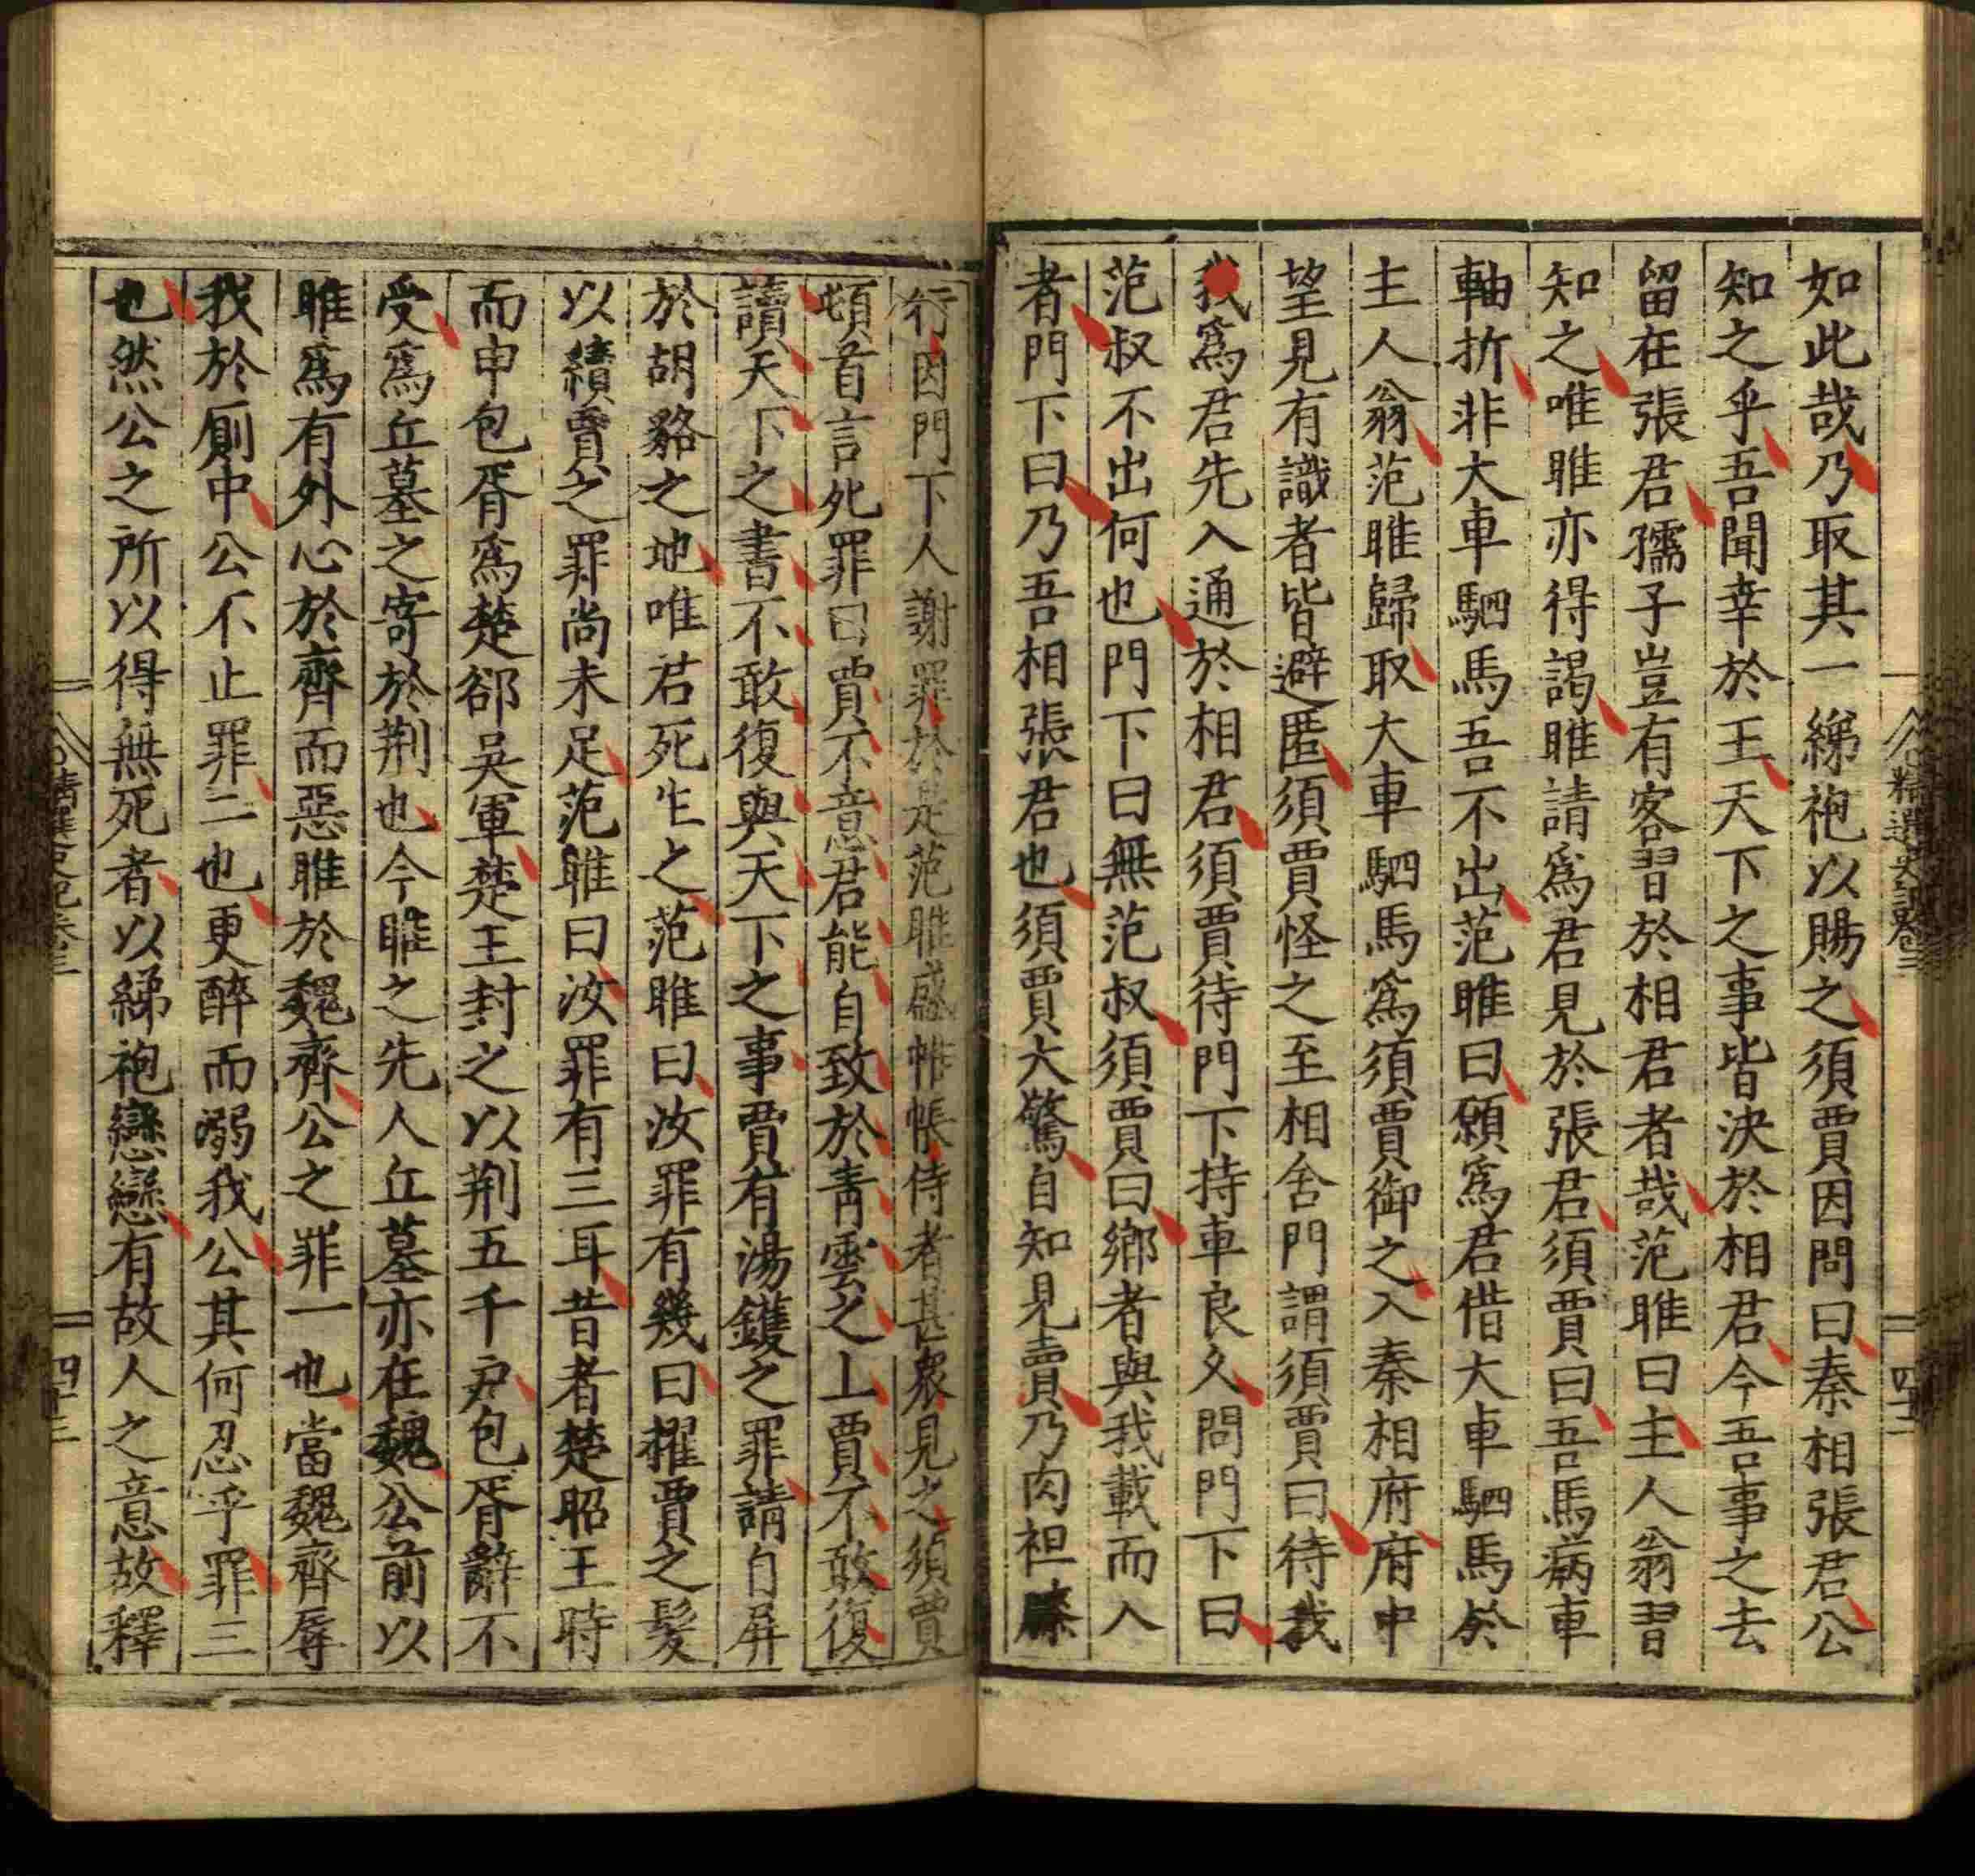 如此哉乃取其一綈袍以賜之須賈因問曰秦相張君公
知之乎吾聞幸於王天下之事皆決於相君今吾事之去
留在張君孺子豈有客習於相君者哉范睢曰主人翁習
知之唯睢亦得謁睢請爲君見於張君須賈曰吾馬病車
軸折非大車駟馬吾不出范睢曰願爲君借大車駟馬於
主人翁范睢歸取大車駟馬爲須賈御之入秦相府府中
望見有識者皆避匿須賈怪之至相舍門謂須賈曰待我
我爲君先入通於相君須賈待門下持車良久問門下曰
范叔不出何也門下曰無范叔須賈曰鄉者與我載而入
者門下曰乃吾相張君也須賈大驚自知見賣乃肉袒膝
精選史記卷三
四十二
行因門下人謝罪於是范睢盛帷帳侍者甚衆見之須賈
頓首言死罪曰賈不意君能自致於靑雲之上賈不敢復
讀天下之書不敢復與天下之事賈有湯鑊之罪請自屏
於胡貉之地唯君死生之范睢曰汝罪有幾曰擢賈之髮
以續賈之罪尚未足范睢曰汝罪有三耳昔者楚昭王時
而申包胥爲楚郤吳軍楚王封之以荆五千戶包胥辭不
受爲丘墓之寄於荆也今睢之先人丘墓亦在魏公前以
睢爲有外心於齊而惡睢於魏齊公之罪一也當魏齊辱
我於厠中公不止罪二也更醉而溺我公其何忍乎罪三
也然公之所以得無死者以綈袍戀戀有故人之意故釋
精選史記卷三
四十三